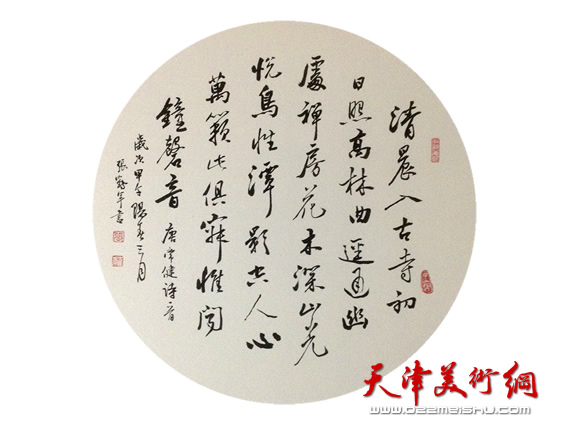 清晨入古寺初
日照高林曲逕通幽
處禪房花木深山光
悅鳥性潭影空人心
萬籟此俱寂惟聞
鐘磬音 唐常健詩
歲次甲午陽春三月
張軍書
天津美術網
www.022meishu.com